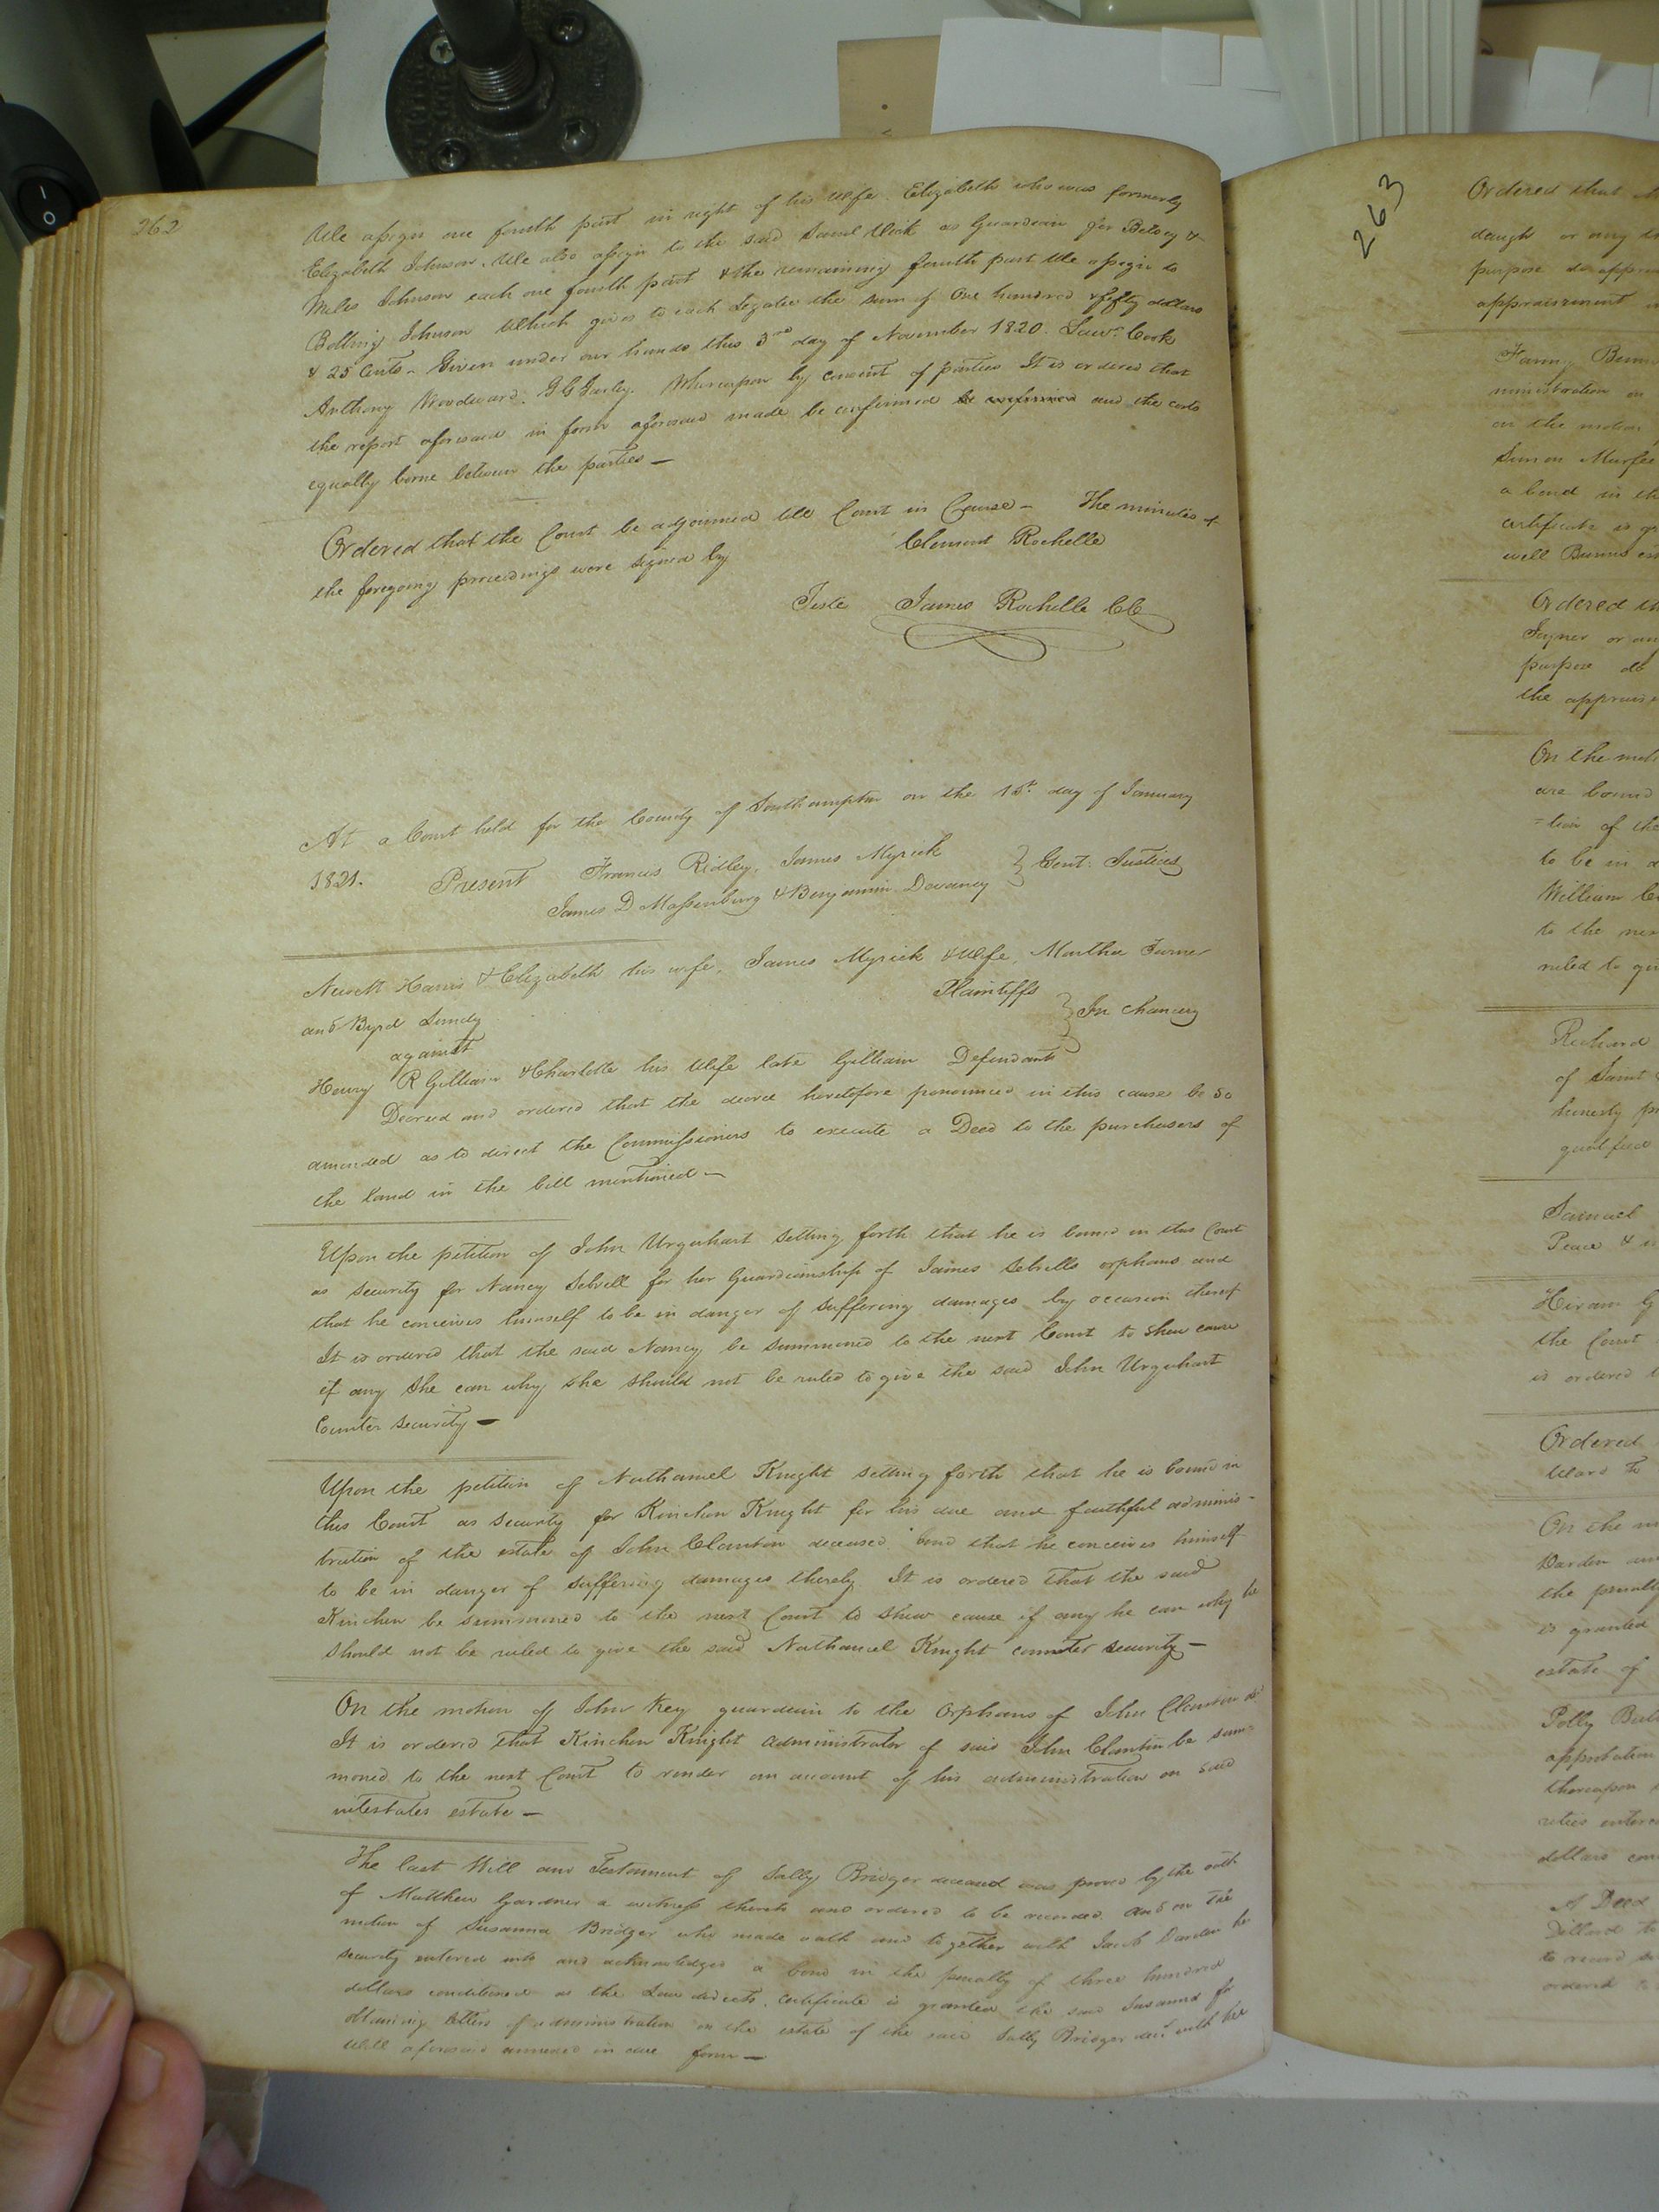 262
We assign one fourth part in right of his Wife Elizabeth who was formerly
Elizabeth Johnson. We also assign to the said as Guardian for Betsey &
Miles Johnson each one fourth part & the remaining fourth part We assign to
Bolling Johnson Which gives to each Legatee the sum of One hundred & fifty dollars
& 25 Cents - Given under our hands this 3rd day of November 1820. Lawr. Cook
Anthony Woodward. Whereupon by consent of parties It is ordered that
the report aforesaid in form aforesaid made be confirmed be confirmed and the costs
equally borne between the parties —
Ordered that the Court be adjourned till Court in Course - The minutes of
the foregoing proceedings were signed by Clement Rochelle
Teste James Rochelle CC
At a Court held for the County of Southampton on the 15th. day of January
1821. Present Francis Ridley, James Myrick
James D Massenburg & Benjamin Devaney } Gent: Justices
Newitt Harris & Elizabeth his wife, James Myrick & Wife, Martha Turner
and Byrd Plaintiffs
against } In Chancery
Henry R Gilliam & Charlotte his Wife late Gilliam Defendants
Decreed and ordered that the decree heretofore pronounced in this cause be so
amended as to direct the Commissioners to execute a Deed to the purchasers of
the land in the bill mentioned —
Upon the petition of John Urquhart setting forth that he is bound in this Court
as security for Nancy Sebrell for her Guardianship of James Sebrells orphans and
that he conceives himself to be in danger of suffering damages by occasion thereof
It is ordered that the said Nancy be summoned to the next Court to shew cause
if any she can why she should not be ruled to give the said John Urquhart
Counter security —
Upon the petition of Nathaniel Knight setting forth that he is bound in
this Court as security for Kinchen Knight for his due and faithful adminis-
tration of the estate of John Clanton deceased and that he conceives himself
to be in danger of suffering damages thereby It is ordered that the said
Kinchen be summoned to the next Court to shew cause if any he can why he
should not be ruled to give the said Nathaniel Knight counter security —
On the motion of John Key guardian to the Orphans of John Clanton
It is ordered that Kinchen Knight administrator of said John Clanton be sum-
moned to the next Court to render an account of his administration on said
intestates estate —
The last Will and Testament of Sally Bridger deceased was proved by the oath
of Matthew Gardner a witness thereto and ordered to be recorded. And on the
motion of Susanna Bridger who made oath and together with Jacob Darden her
security entered into and acknowledged a bond in the penalty of three hundred
dollars conditioned as the Law directs. Certificate is granted the said Susanna for
obtaining letters of administration on the estate of the said Sally Bridger decd with her
Will aforesaid annexed in due form —
263
Ordered that
daugh or any
purpose do
appraisement
Fanny
ministration on
on the motion
Simon Murfee
a bond in
certificate is
well
Ordered
or
purpose do
the
On the
are bound
-tion of the
to be in
William
to the
ruled to
Richard
of Saint
honesty
qualified
Samuel
Peace &
Hiram
the Court
is ordered
Ordered
to
On the
Darden
the
is granted
estate of
Polly
approbation
thereupon
rities
dollars
A Deed
Dillard
to
ordered